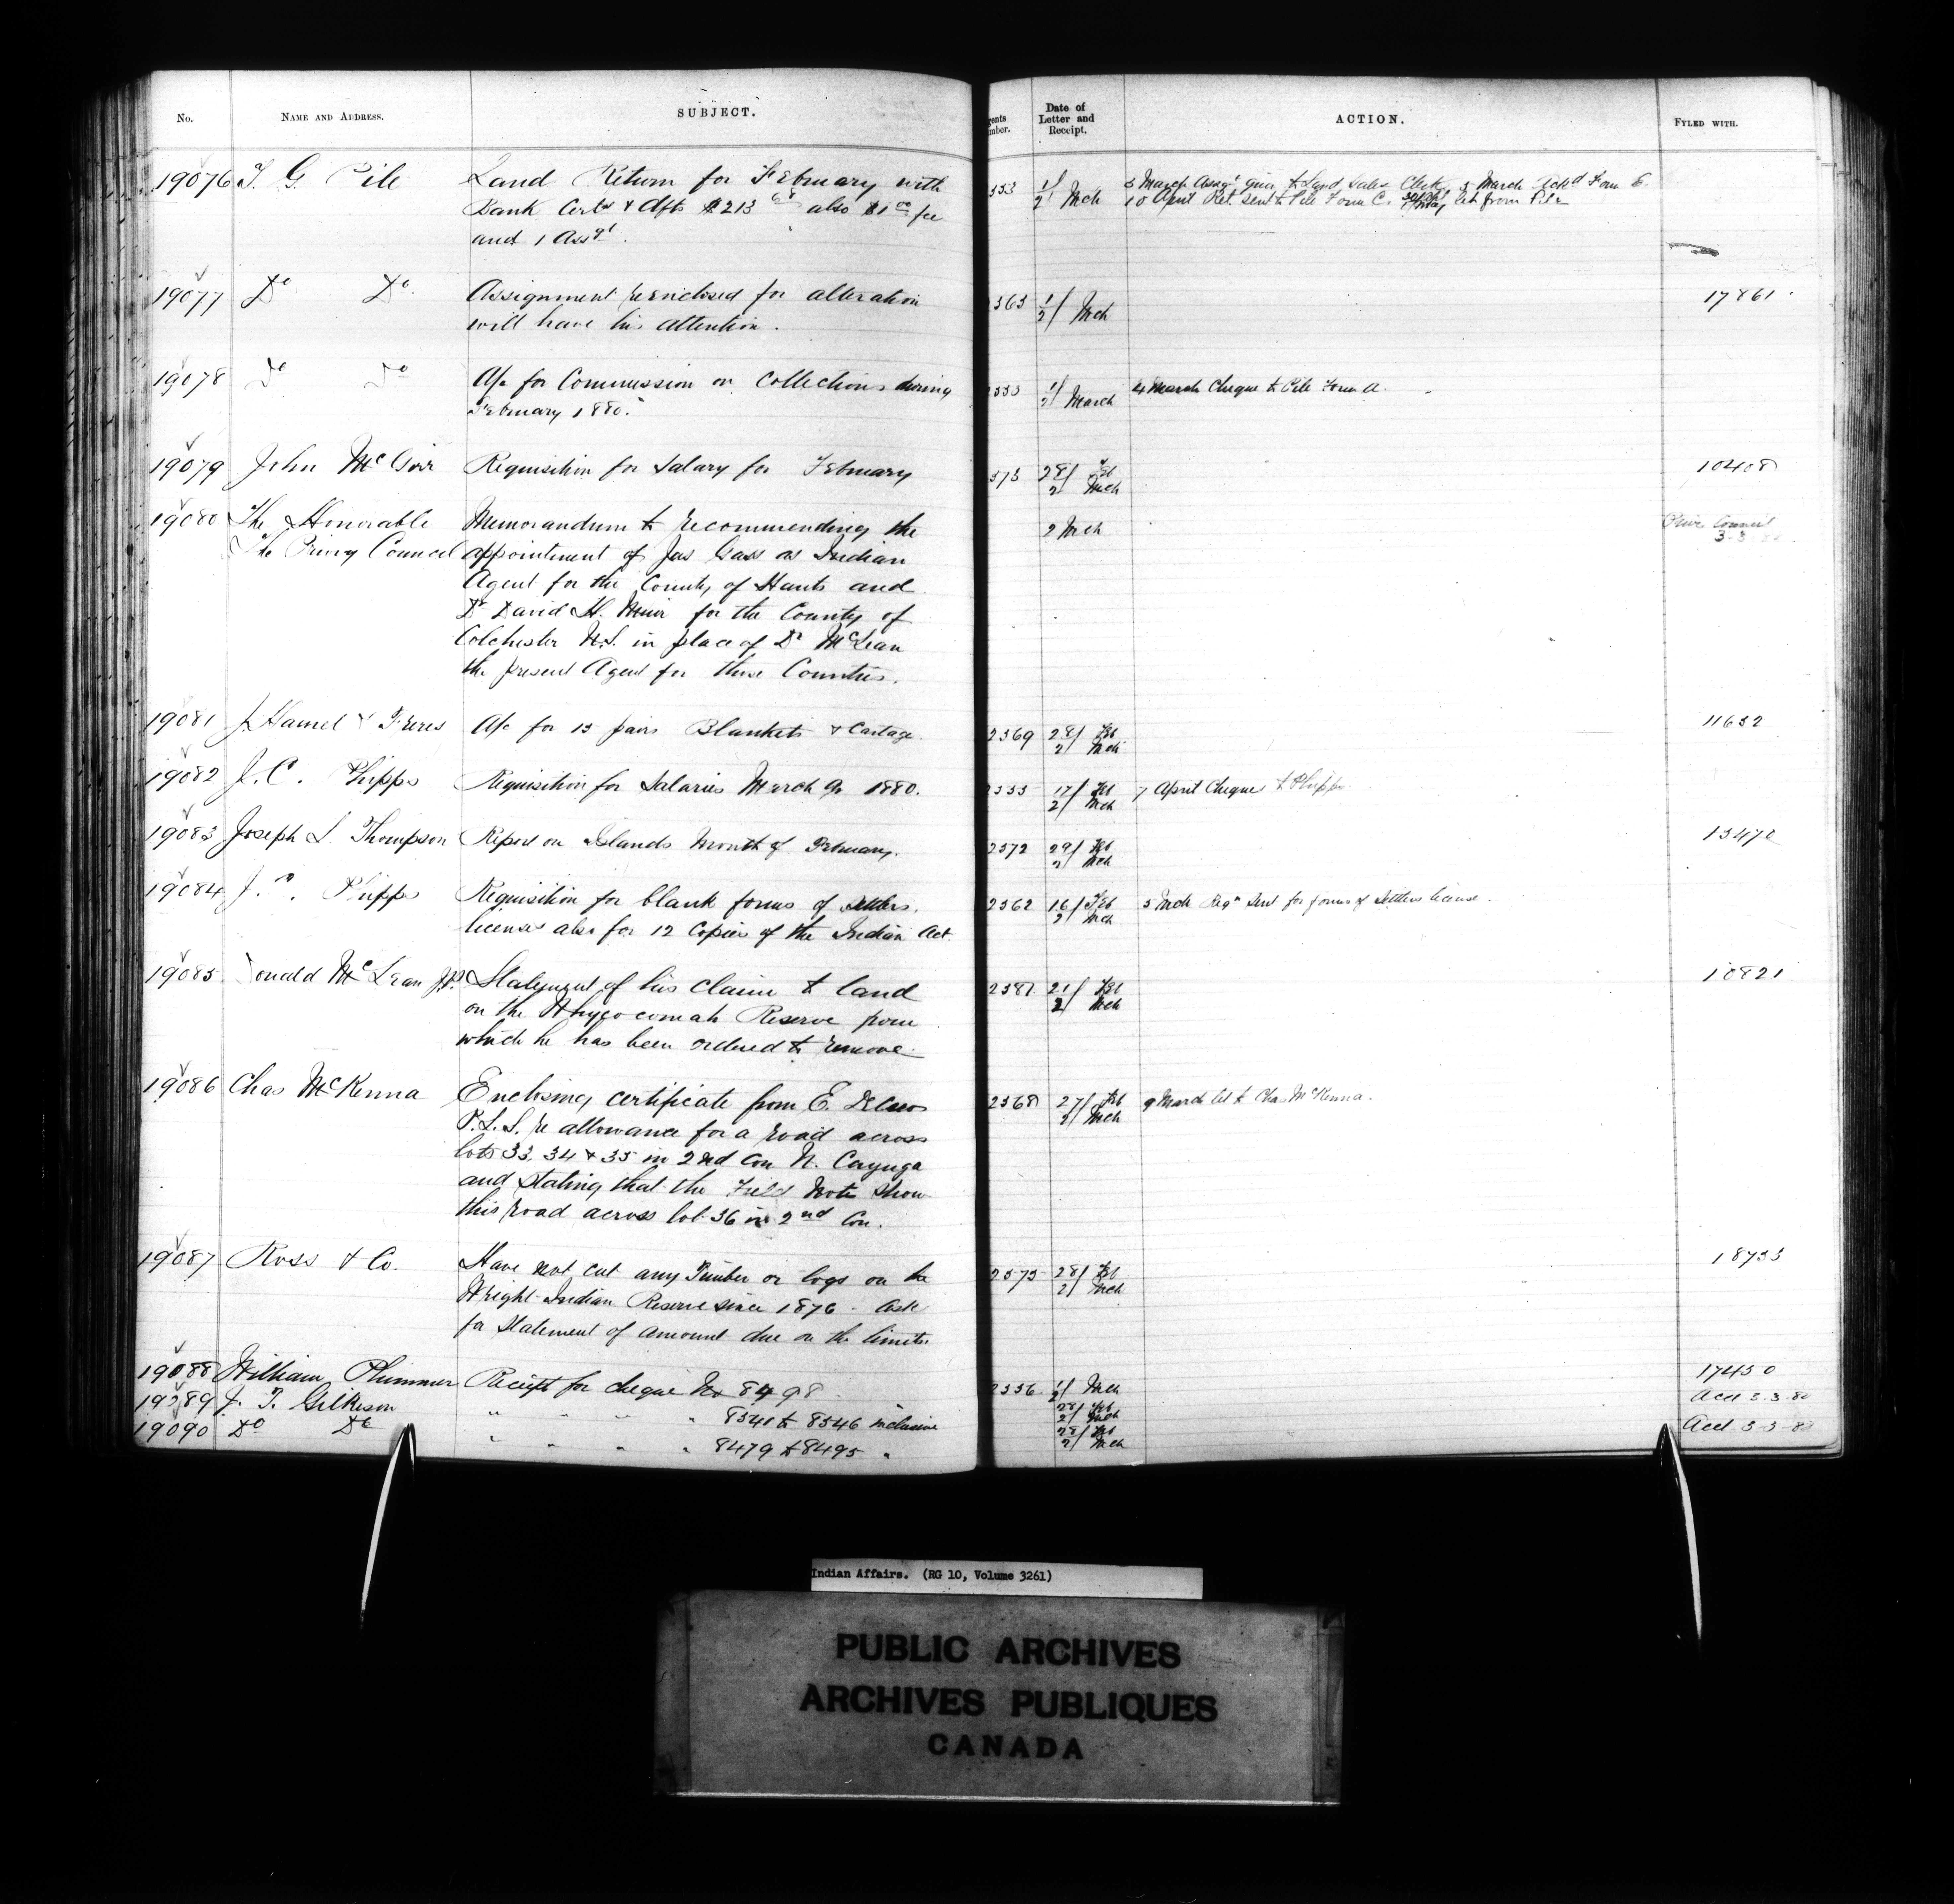 No.
NAME AND ADDRESS.
SUBJECT.
Date of
Letter and
Receipt.
ACTION.
FYLED WITH.
19076 T. G. Pile
Land Return for February with
Bank Certs & Dfts $213 also $1 00 fee
and 1 Assgt.
1/2 Mch
3 March Assgt given to Land Sales Clerk, 5 March Ackd Form E.
10 April Ret. sent to Pile Form C. let from Pile
19077 Do Do
Assignment re enclosed for alteration
will have his attention.
363 1/2 Mch
17861
19078 Do Do
A/c for Commission on Collections during
February 1880.
1/2 March
4 March Cheque to Pile Form A.
19079 John McGirr
Requisition for Salary for February
373 28/2 Feb Mch
10408
19080 The Honorable
The Privy Council
Memorandum to recommending the
appointment of Jas Gass as Indian
Agent for the County of Hants and
Dr David H. Muir for the County of
Colchester N.S. in place of Dr McLean
the present Agent for those Counties.
2 Mch
Privy Council
3-3-80
19081 J. Hamel & Freres
A/c for 15 pairs Blankets & Cartage
2369 28/2 Feb Mch
11632
19082 J. C. Phipps
Requisition for Salaries March qr 1880.
17/2 Feb Mch
7 April Cheque to Phipps
19083 Joseph S. Thompson
Report on Islands Month of February.
2372 29/2 Feb Mch
13470
19084 J. C. Phipps
Requisition for blank forms of settlers
licenses also for 12 Copies of the Indian Act
2362 16/2 Feb Mch
5 Mch Reqn Sent for forms of Settlers license.
19085 Donald McLean J.P.
Statement of his claim to land
on the Whycocomah Reserve from
which he has been ordered to remove
2381 21/2 Feb Mch
10821
19086 Chas McKenna
Enclosing certificate from E. DeCew
P.L.S. re allowance for a road across
lots 33, 34 & 35 in 2nd Con N. Cayuga
and stating that the Field Notes show
this road across lot 36 in 2nd Con.
2368 27/2 Feb Mch
9 March let to Chas McKenna.
19087 Ross & Co.
Have not cut any Timber or logs on the
Wright Indian Reserve since 1876 - ask
for Statement of amount due on the limits.
2375 28/2 Feb Mch
18733
19088 William Plummer
Receipt for cheque No 8498
2356 1/2 Mch
17450
19089 J. T. Gilkison
" " " " 8341 to 8346 inclusive
28/2 Feb Mch
Acct 3-3-80
19090 Do Do
" " " " 8479 to 8495 "
28/2 Feb Mch
Acct 3-3-80
Indian Affairs. (RG 10, Volume 3261)
PUBLIC ARCHIVES
ARCHIVES PUBLIQUES
CANADA